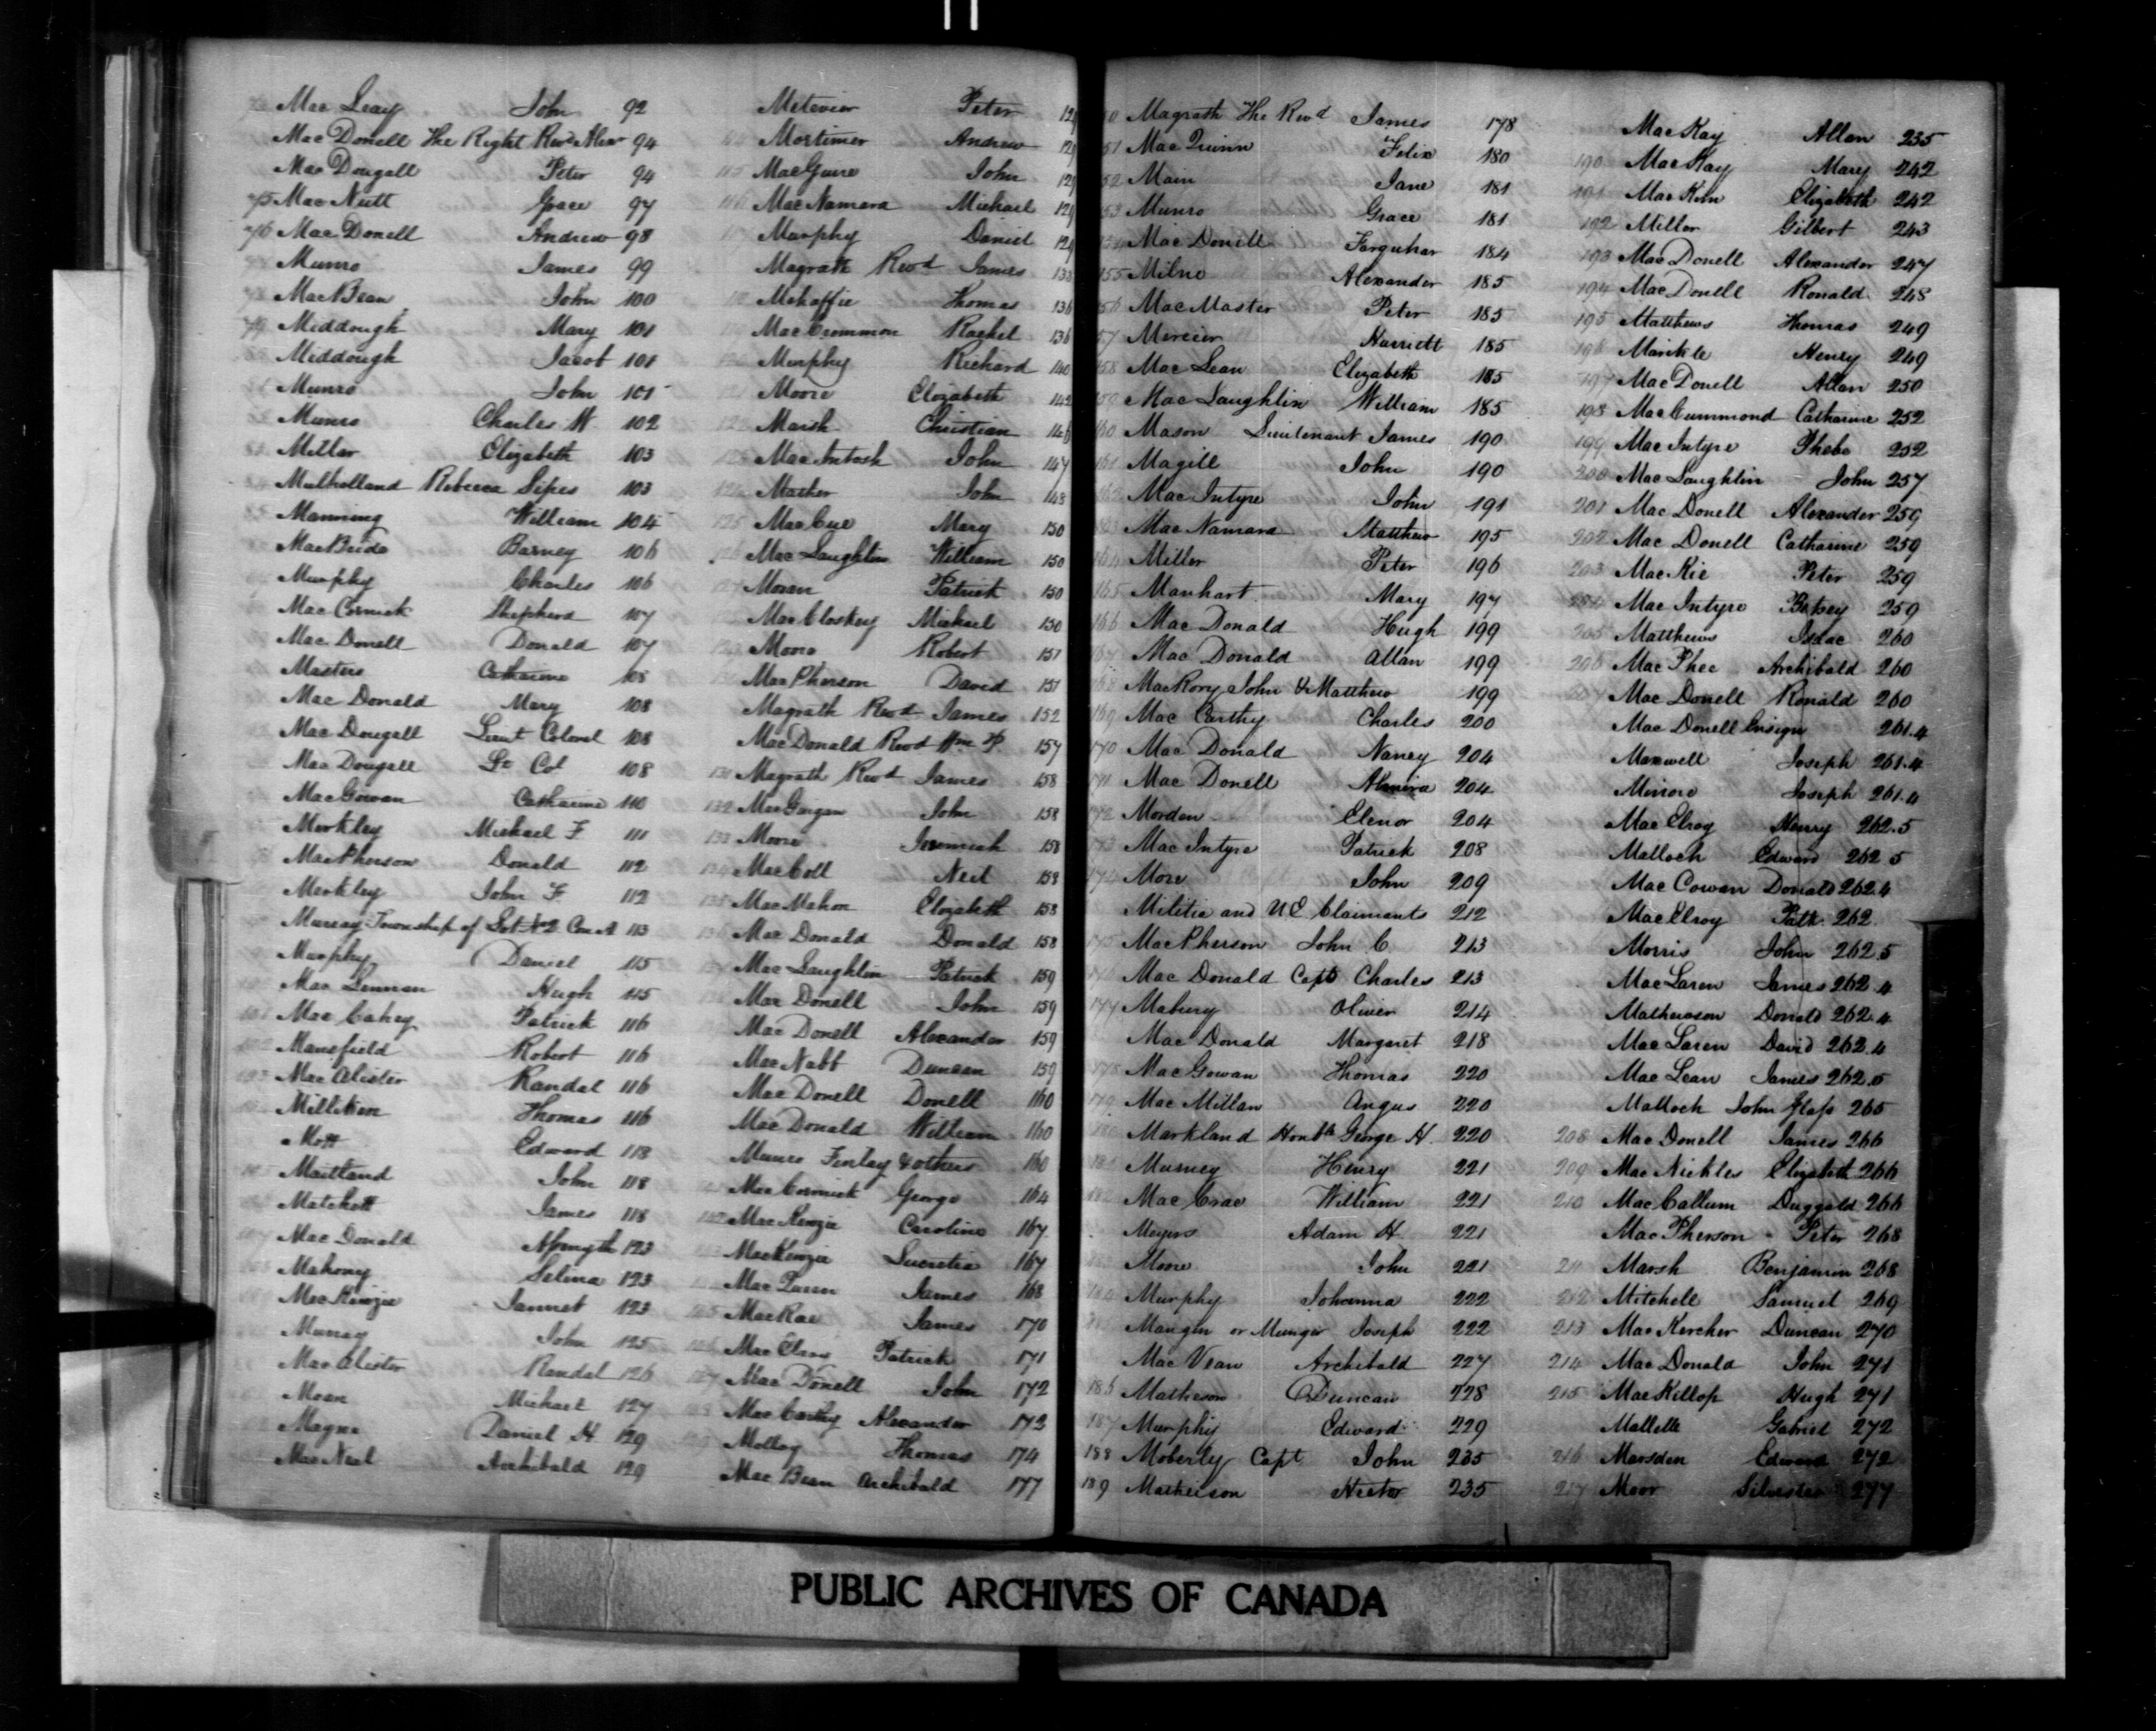 Mac Leay John 92
Mac Donell The Right Revd Alexr 94
Mac Dougall Peter 94
75 Mac Nutt Grace 97
76 Mac Donell Andrew 98
Munro James 99
MacBean John 100
79 Middough Mary 101
Middough Jacob 101
Munro John 101
Munro Charles W 102
Millar Elizabeth 103
Mulholland Rebecca Sipes 103
Manning William 104
MacBride Barney 106
Murphy Charles 106
Mac Cormick Shepherd 107
Mac Donell Donald 107
Masters Catharine 108
Mac Donald Mary 108
Mac Dougall Lieut Colonel 108
Mac Dougall Lt Col 108
MacGowan Catharine 110
Merkley Michael F 111
MacPherson Donald 112
Merkley John F 112
Murray Township of Lot No 2 Con A 113
Murphy Daniel 115
Mac Lennan Hugh 115
Mac Cahey Patrick 116
Mansfield Robert 116
Mac Alister Randal 116
Milliken Thomas 116
Mott Edward 118
Maitland John 118
Matchett James 118
Mac Donald 123
Mahony Selina 123
MacKenzie Jannet 123
Murray John 125
Mac Alister Randal 126
Moan Michael 127
Magna Daniel H 129
MacNeal Archibald 129
Metevier Peter
Mortimer Andrew
MacGuire John
MacNamara Michael
Murphy Daniel
Magrath Revd James
Mahaffie Thomas 136
MacCrommon Rachel 136
Murphy Richard 140
Moore Elizabeth 142
Marsh Christian 146
Mac Intosh John 147
Mather John 148
MacCue Mary 150
Mac Laughlin William 150
Moran Patrick 150
MacCloskey Michael 150
Moore Robert 151
MacPherson David 151
Magrath Revd James 152
MacDonald Revd Wm P 157
131 Magrath Revd James 158
132 MacGorgan John 158
133 Moore Jeremiah 158
134 MacColl Neil 158
135 MacMahon Elizabeth 158
Mac Donald Donald 158
Mac Laughlin Patrick 159
Mac Donell John 159
Mac Donell Alexander 159
MacNabb Duncan 159
Mac Donell Donell 160
Mac Donald William 160
Munro Finlay & others 160
MacCormick George 164
MacKenzie Caroline 167
MacKenzie Lucretia 167
Mac Laren James 168
MacRae James 170
Mac Patrick 171
Mac Donell John 172
Mac Carthy Alexander 173
Molloy Thomas 174
Mac Bean Archibald 177
Magrath The Revd James 178
151 Mac Quinn Felix 180
152 Main Jane 181
153 Munro Grace 181
154 Mac Donell Farquhar 184
155 Milne Alexander 185
156 MacMaster Peter 185
157 Mercier Harriett 185
158 Mac Lean Elizabeth 185
159 Mac Laughlin William 185
160 Mason Lieutenant James 190
161 Magill John 190
162 MacIntyre John 191
163 MacNamara Matthew 195
164 Miller Peter 196
165 Manhart Mary 197
166 Mac Donald Hugh 199
167 Mac Donald Allan 199
168 MacRory John & Matthew 199
169 Mac Carthy Charles 200
170 Mac Donald Nancy 204
171 Mac Donell Almira 204
172 Morden Elenor 204
173 Mac Intyre Patrick 208
174 More John 209
Militia and U.E. Claimants 212
175 MacPherson John C. 213
176 Mac Donald Capt Charles 213
177 Mabury Oliver 214
Mac Donald Margaret 218
178 MacGowan Thomas 220
179 Mac Millan Angus 220
180 Markland Honble George H. 220
181 Murney Henry 221
182 Mac Crae William 221
Meyers Adam H 221
183 Moore John 221
184 Murphy Johanna 222
185 Mangin or Munger Joseph 222
Mac Vean Archibald 227
186 Matheson Duncan 228
187 Murphy Edward 229
188 Moberly Capt John 235
189 Matheison Hector 235
MacKay Allan 235
190 MacKay Mary 242
191 MacKim Elizabeth 242
192 Miller Gilbert 243
193 MacDonell Alexander 247
194 MacDonell Ronald 248
195 Matthews Thomas 249
196 Markle Henry 249
197 MacDonell Allan 250
198 MacCummond Catharine 252
199 MacIntyre Phebe 252
200 MacLaughlin John 257
201 Mac Donell Alexander 259
202 Mac Donell Catharine 259
203 MacKie Peter 259
204 MacIntyre Betsey 259
205 Matthews Isaac 260
206 MacPhee Archibald 260
207 Mac Donell Ronald 260
Mac Donell Ensign 261.4
Maxwell Joseph 261.4
Minore Joseph 261.4
MacElroy Henry 262.5
Malloch Edward 262 5
Mac Cowan Donald 262.4
MacElroy Patk 262.
Morris John 262.5
MacLaren James 262.4
Mathewson Donald 262.4
MacLaren David 262.4
Mac Lean James 262.5
Malloch John Glass 265
208 MacDonell James 266
209 Mac Nickles Elizabeth 266
210 MacCallum Duggald 266
MacPherson Peter 268
211 Marsh Benjamin 268
212 Mitchell Samuel 269
213 MacKercher Duncan 270
214 MacDonald John 271
215 MacKillop Hugh 271
Mallette Gabriel 272
216 Marsden Edward 272
217 Moor Silvester 277
PUBLIC ARCHIVES OF CANADA